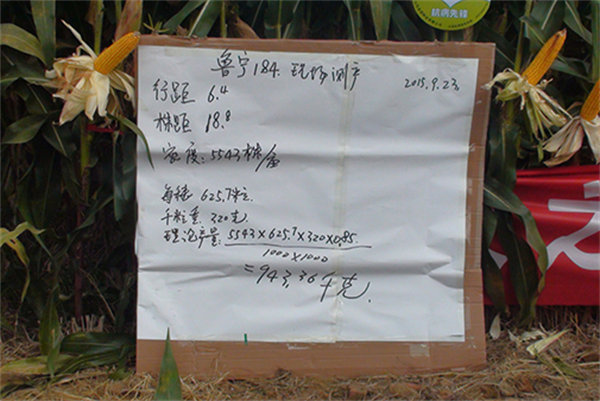 抗病先锋
鲁宁184.现场测产
2015.9.23
行距 6.4
株距 18.8
密度:5543株/亩
每穗 625.7粒
千粒重:320克
理论产量: 5543×625.7×320×0.85
1000×1000
=943.36千克.